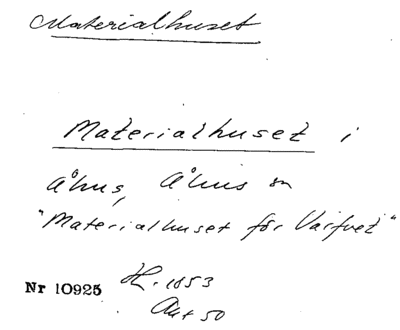 Materialhuset
Materialhuset i
Åhus, Åhus sn
"Materialhuset för Varfvet"
Nr 10925 H. 1853
Akt 50